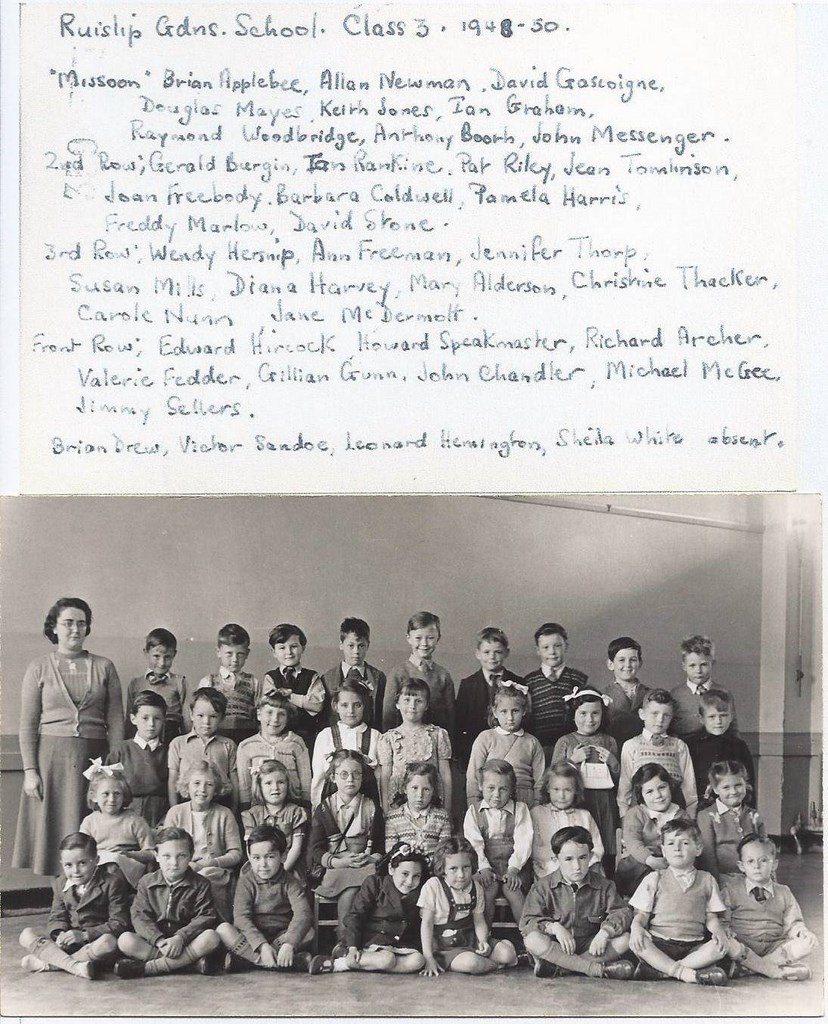 Ruislip Gdns. School. Class 3. 1948-50.
"Missoon" Brian Applebee, Allan Newman, David Gascoigne,
Douglas Mayes, Keith Jones, Ian Graham,
Raymond Woodbridge, Anthony Booth, John Messenger.
2nd Row; Gerald Burgin, Ian Rankine. Pat Riley, Jean Tomlinson,
Joan Freebody. Barbara Coldwell, Pamela Harris,
Freddy Marlow, David Stone.
3rd Row; Wendy Hersnip, Ann Freeman, Jennifer Thorp,
Susan Mills, Diana Harvey, Mary Alderson, Christine Thacker,
Carole Nunn, Jane McDermott.
Front Row; Edward Hircock, Howard Speakmaster, Richard Archer,
Valerie Fedder, Gillian Gunn, John Chandler, Michael McGee,
Jimmy Sellers.
Brian Drew, Victor Sandoe, Leonard Hemington, Sheila White absent.